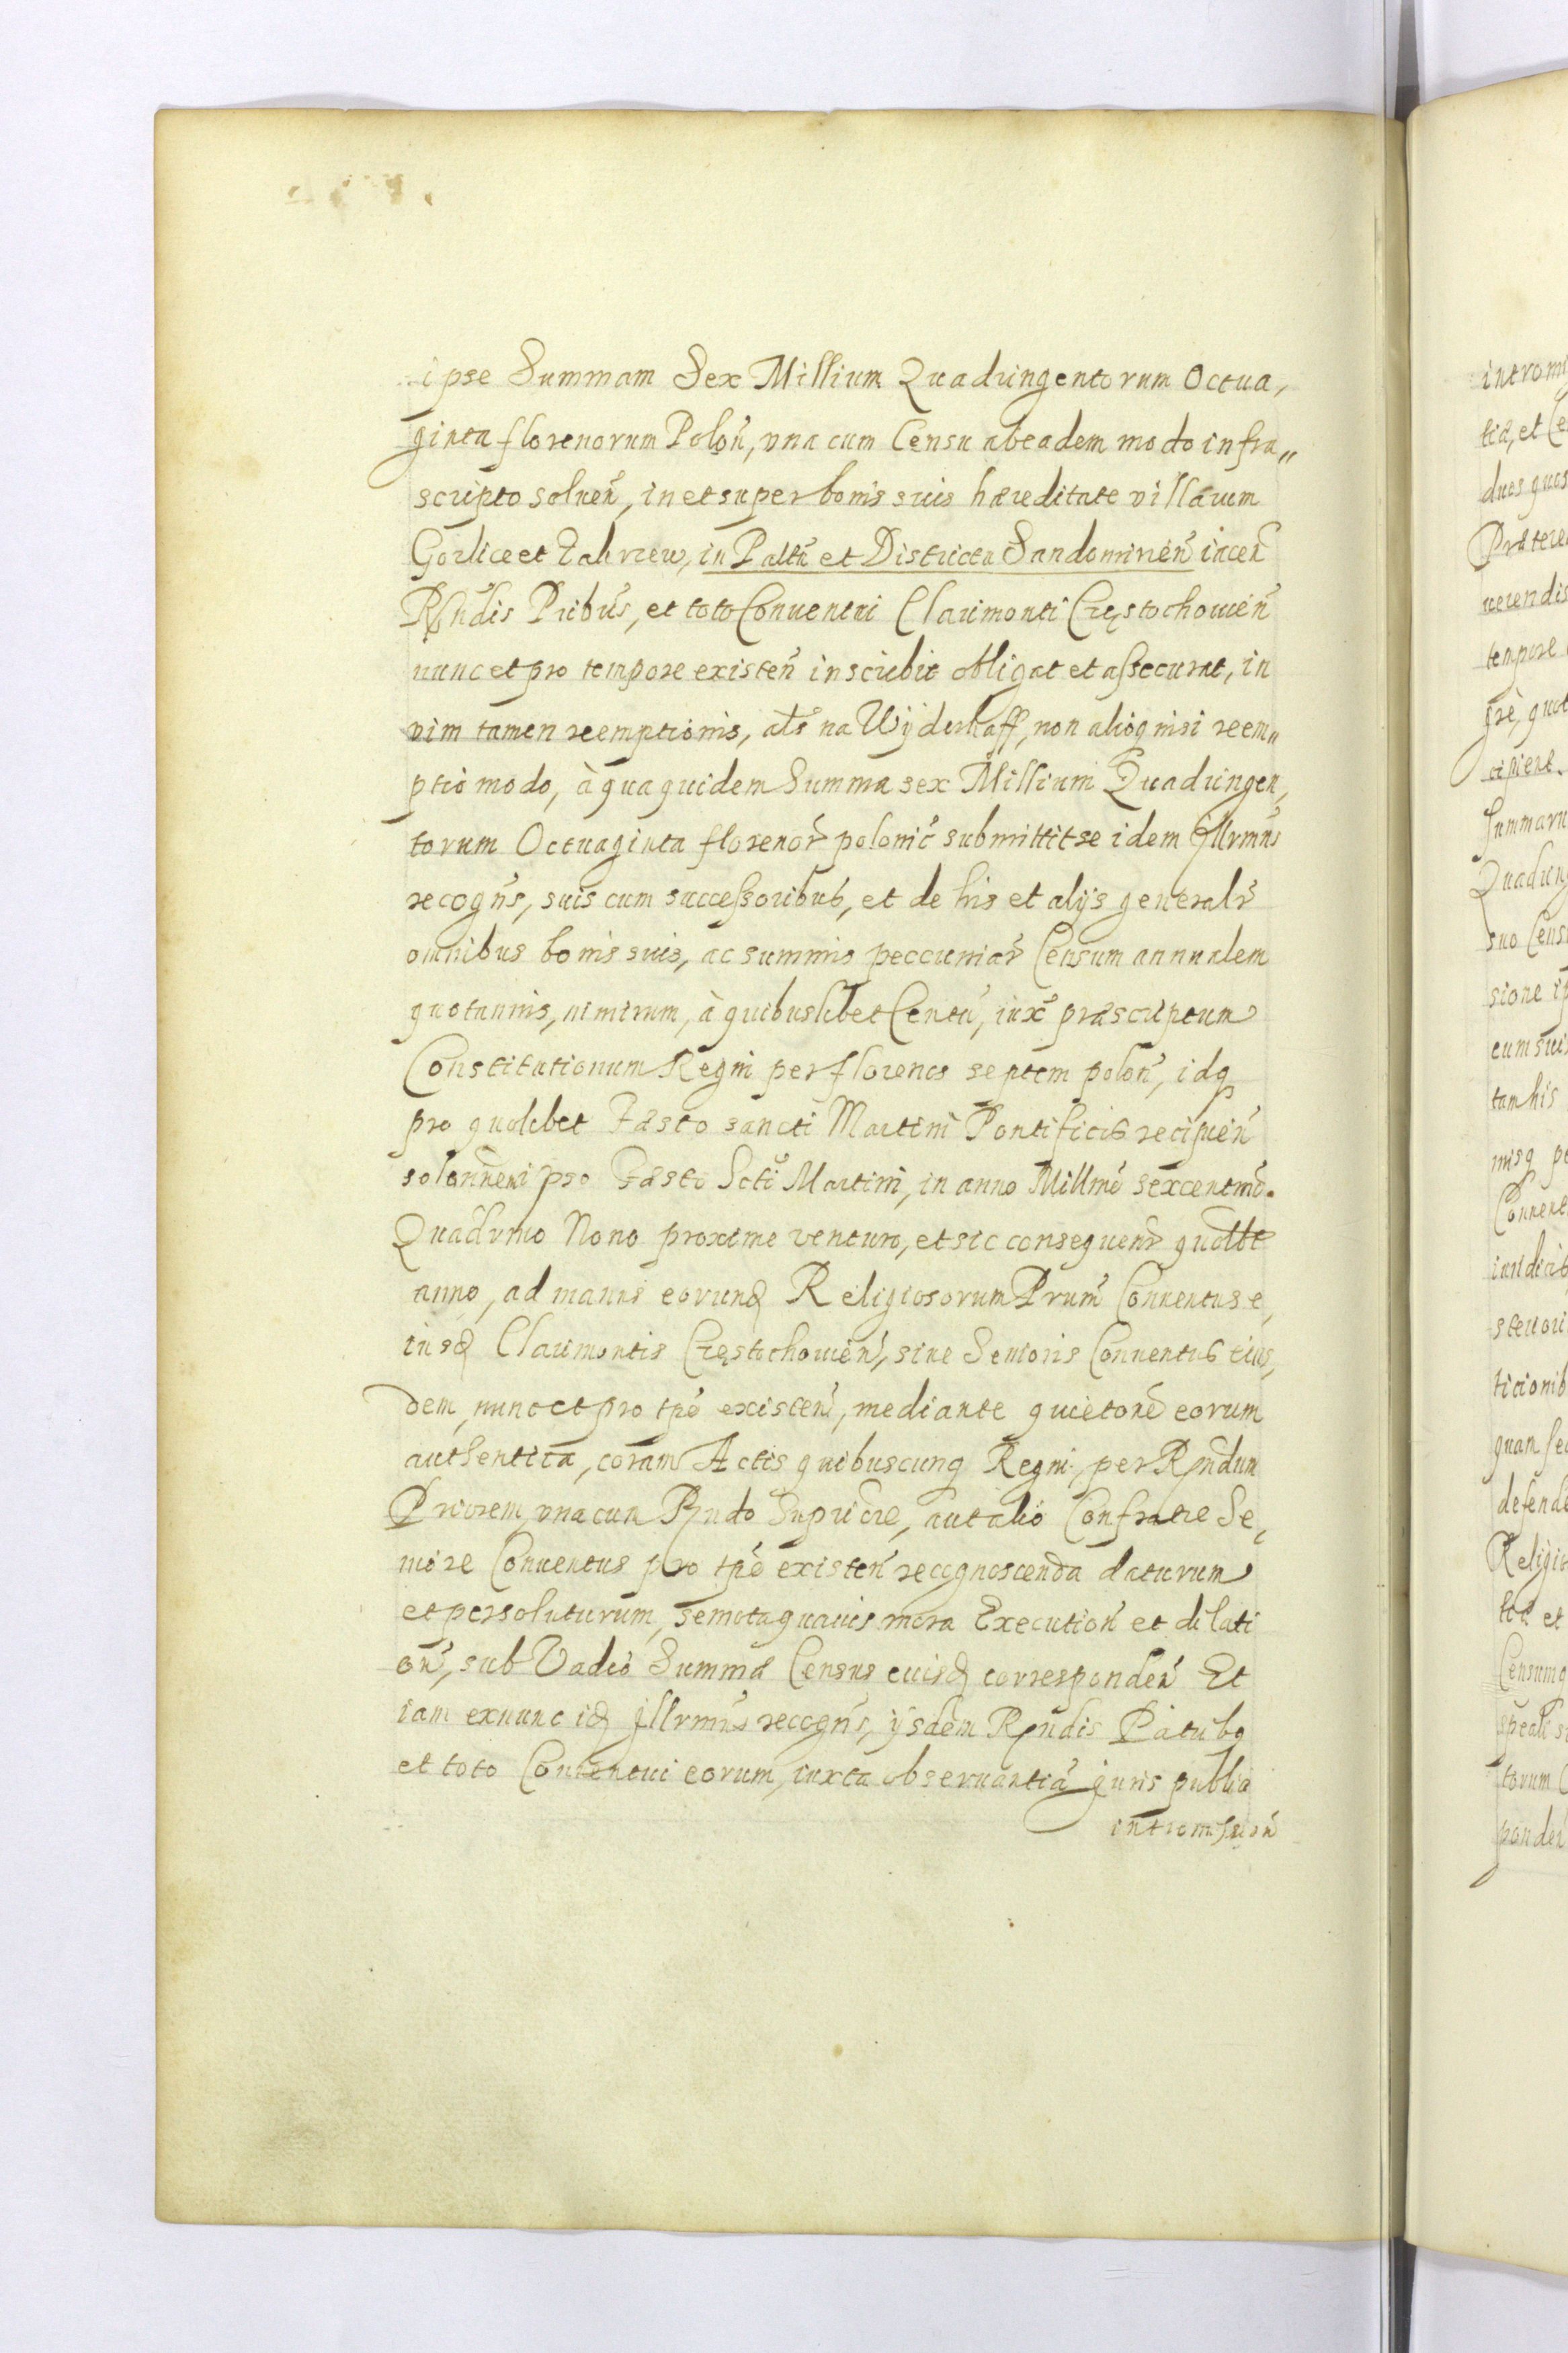 ipse Summam Sex Millium Quadringentorum Octua,
ginta florenorum Poloñ, vna cum Censu ab eadem modo infra„
scripto soluen̄, in et super bonis suis hæreditate villarum
Gorlice et, in Paltū et Districtu Sandomirien̄ iacen̄
Rn̄dis Pribus̄, et toto Conventui Clarimonti Częstochowien̄
nunc et pro tempore existen̄ inscribit obligat et assecurat, in
vim tamen reemptionis, als̄ na Wÿderkaff, non alioq nisi reem„
ptio modo, à qua quidem Summa sex Millium Quadringen,
torum Octuaginta florenor̄ polonic̄ submittit se idem Illrmus̄
recogn̄s, suis cum successoribus, et de his et alijs generalr̄
omnibus bonis suis, ac summis peccuniar̄ Censum annualem
quotannis, nimirum, à quibuslibet Centū, iux̄ præscriptum
Constitutionum Regni per florenos septem polon̄, idq
pro quolibet Fæsto sancti Martini Pontificis recipien̄
pro Fæsto Scti Martini, in anno Millmo sexcentmo.
Quadrmo Nono proxime venturo, et sic consequenr̄ quotlbt
anno, ad manus eorund Religiosorum Prum̄ Conuentus e,
iusd Clarimontis Częstochouien̄, siue Senioris Conuentus eius,
dem, nunc et pro tp̄e existen̄, mediante quietōne eorum
authentica, coram Actis quibuscunq Regni, per Rn̄dum
Priorem, vna cum Rn̄do Supriōre, aut alio Confratre Se,
niore Conuentus pro tp̄e existen̄ recognoscenda daturum
et persoluturum, semota quauis mora Execution̄ et dilati
on̄, sub Vadio Summæ Census euisd correspondēn Et
iam exnunc id Jllrmus̄ recogn̄s, ijsdem Rn̄dis Patribq
et toto Conuentui eorum, iuxta obseruantiā juris publici
intromission̄

intromi
tiā, et Ce
duos quos
Prætere
uerendis
tempore
cipiens.
Summaru
Quadring
suo Cens
sione ip
cum suis
tam his
nisq pe
Conuent
iuridicis
quam se
defende
Religio
Censumq
torum
ponden